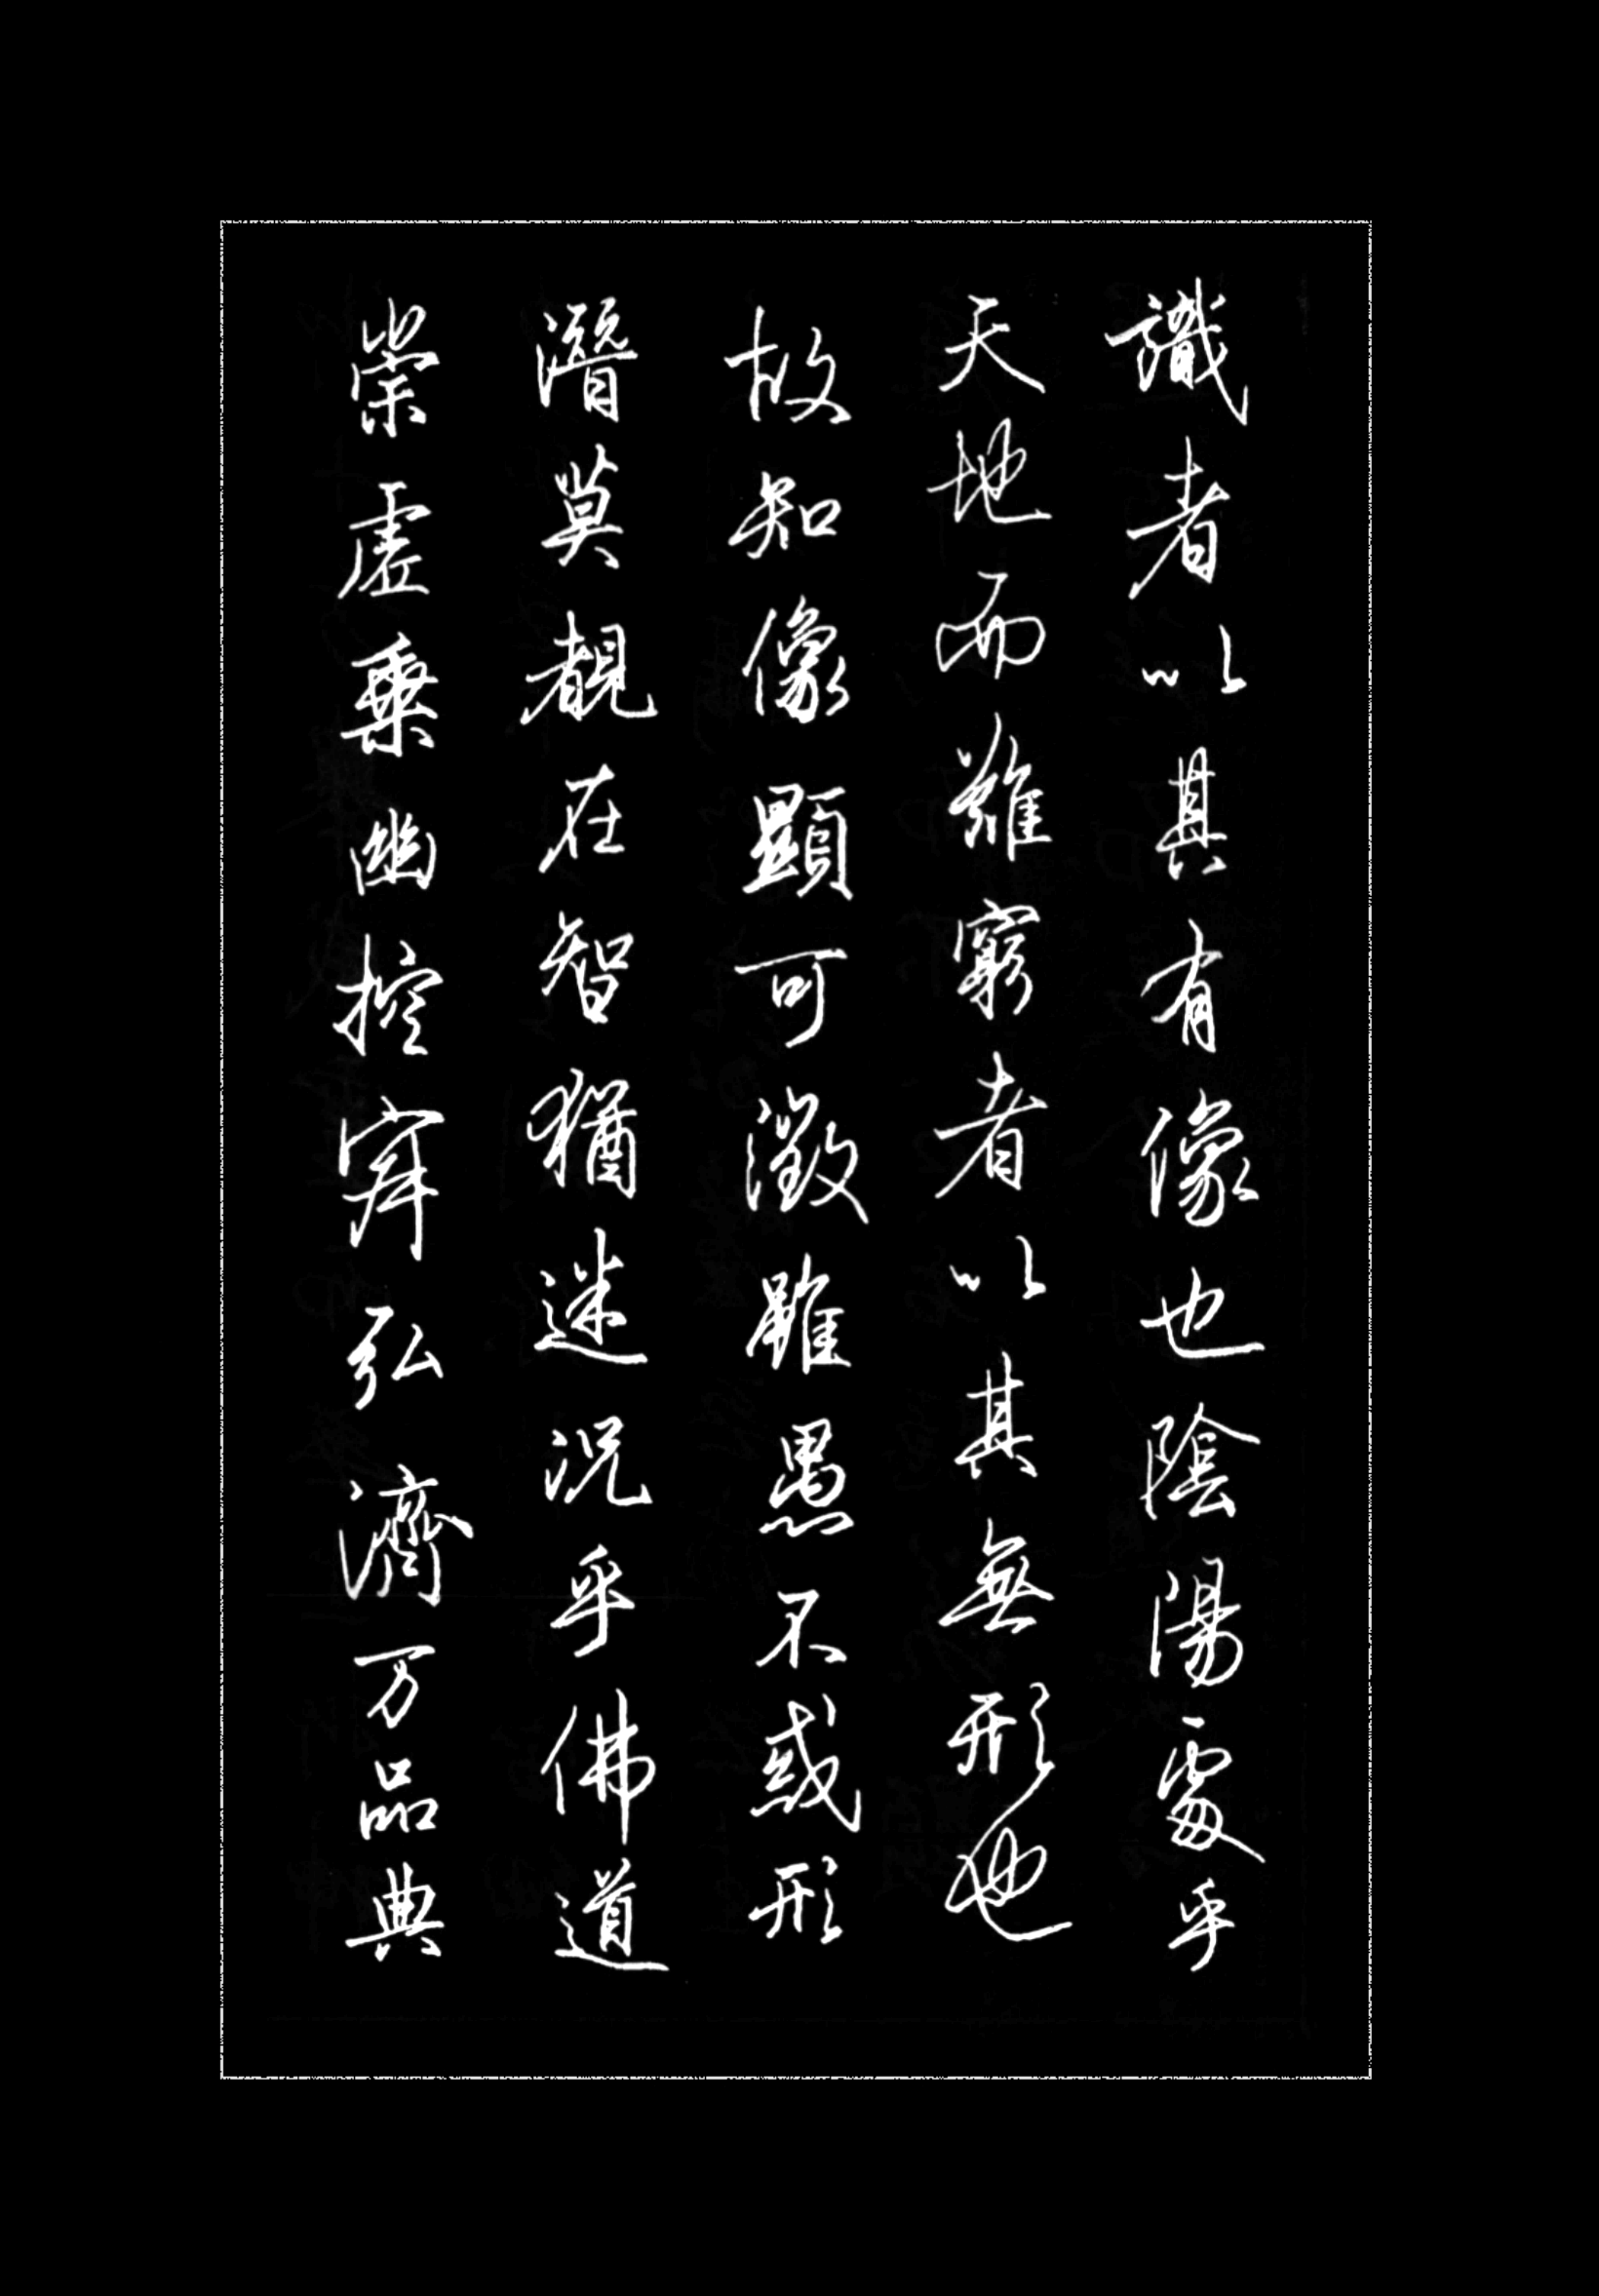 識者以其有像也陰陽處乎
天地而難窮者以其無形也
故知像顯可徵雖愚不惑形
潛莫覩在智猶迷況乎佛道
崇虛乘幽控寂弘濟万品典